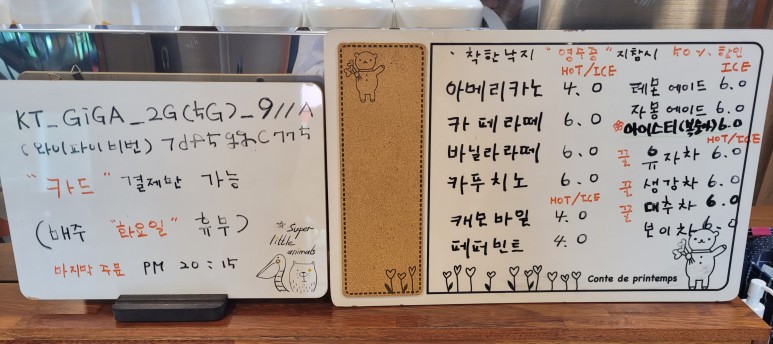 KT_GiGA_2G(5G)_911A
(와이파이비번)
"카드" 결제만 가능
(매주 "화요일" 휴무)
마지막 주문 PM 20:15
Super-
little
animals
· 착한낙지 "영수증" 지참시 50% 할인
HOT/ICE
아메리카노 4.0
카페라떼 6.0
바닐라라떼 6.0
카푸치노 6.0
HOT/ICE
캐모마일 4.0
페퍼민트 4.0
ICE
레몬에이드 6.0
자몽에이드 6.0
아이스티(복숭아) 6.0
HOT/ICE
꿀 유자차 6.0
꿀 생강차 6.0
꿀 대추차 6.0
보이차 6.0
Conte de printemps